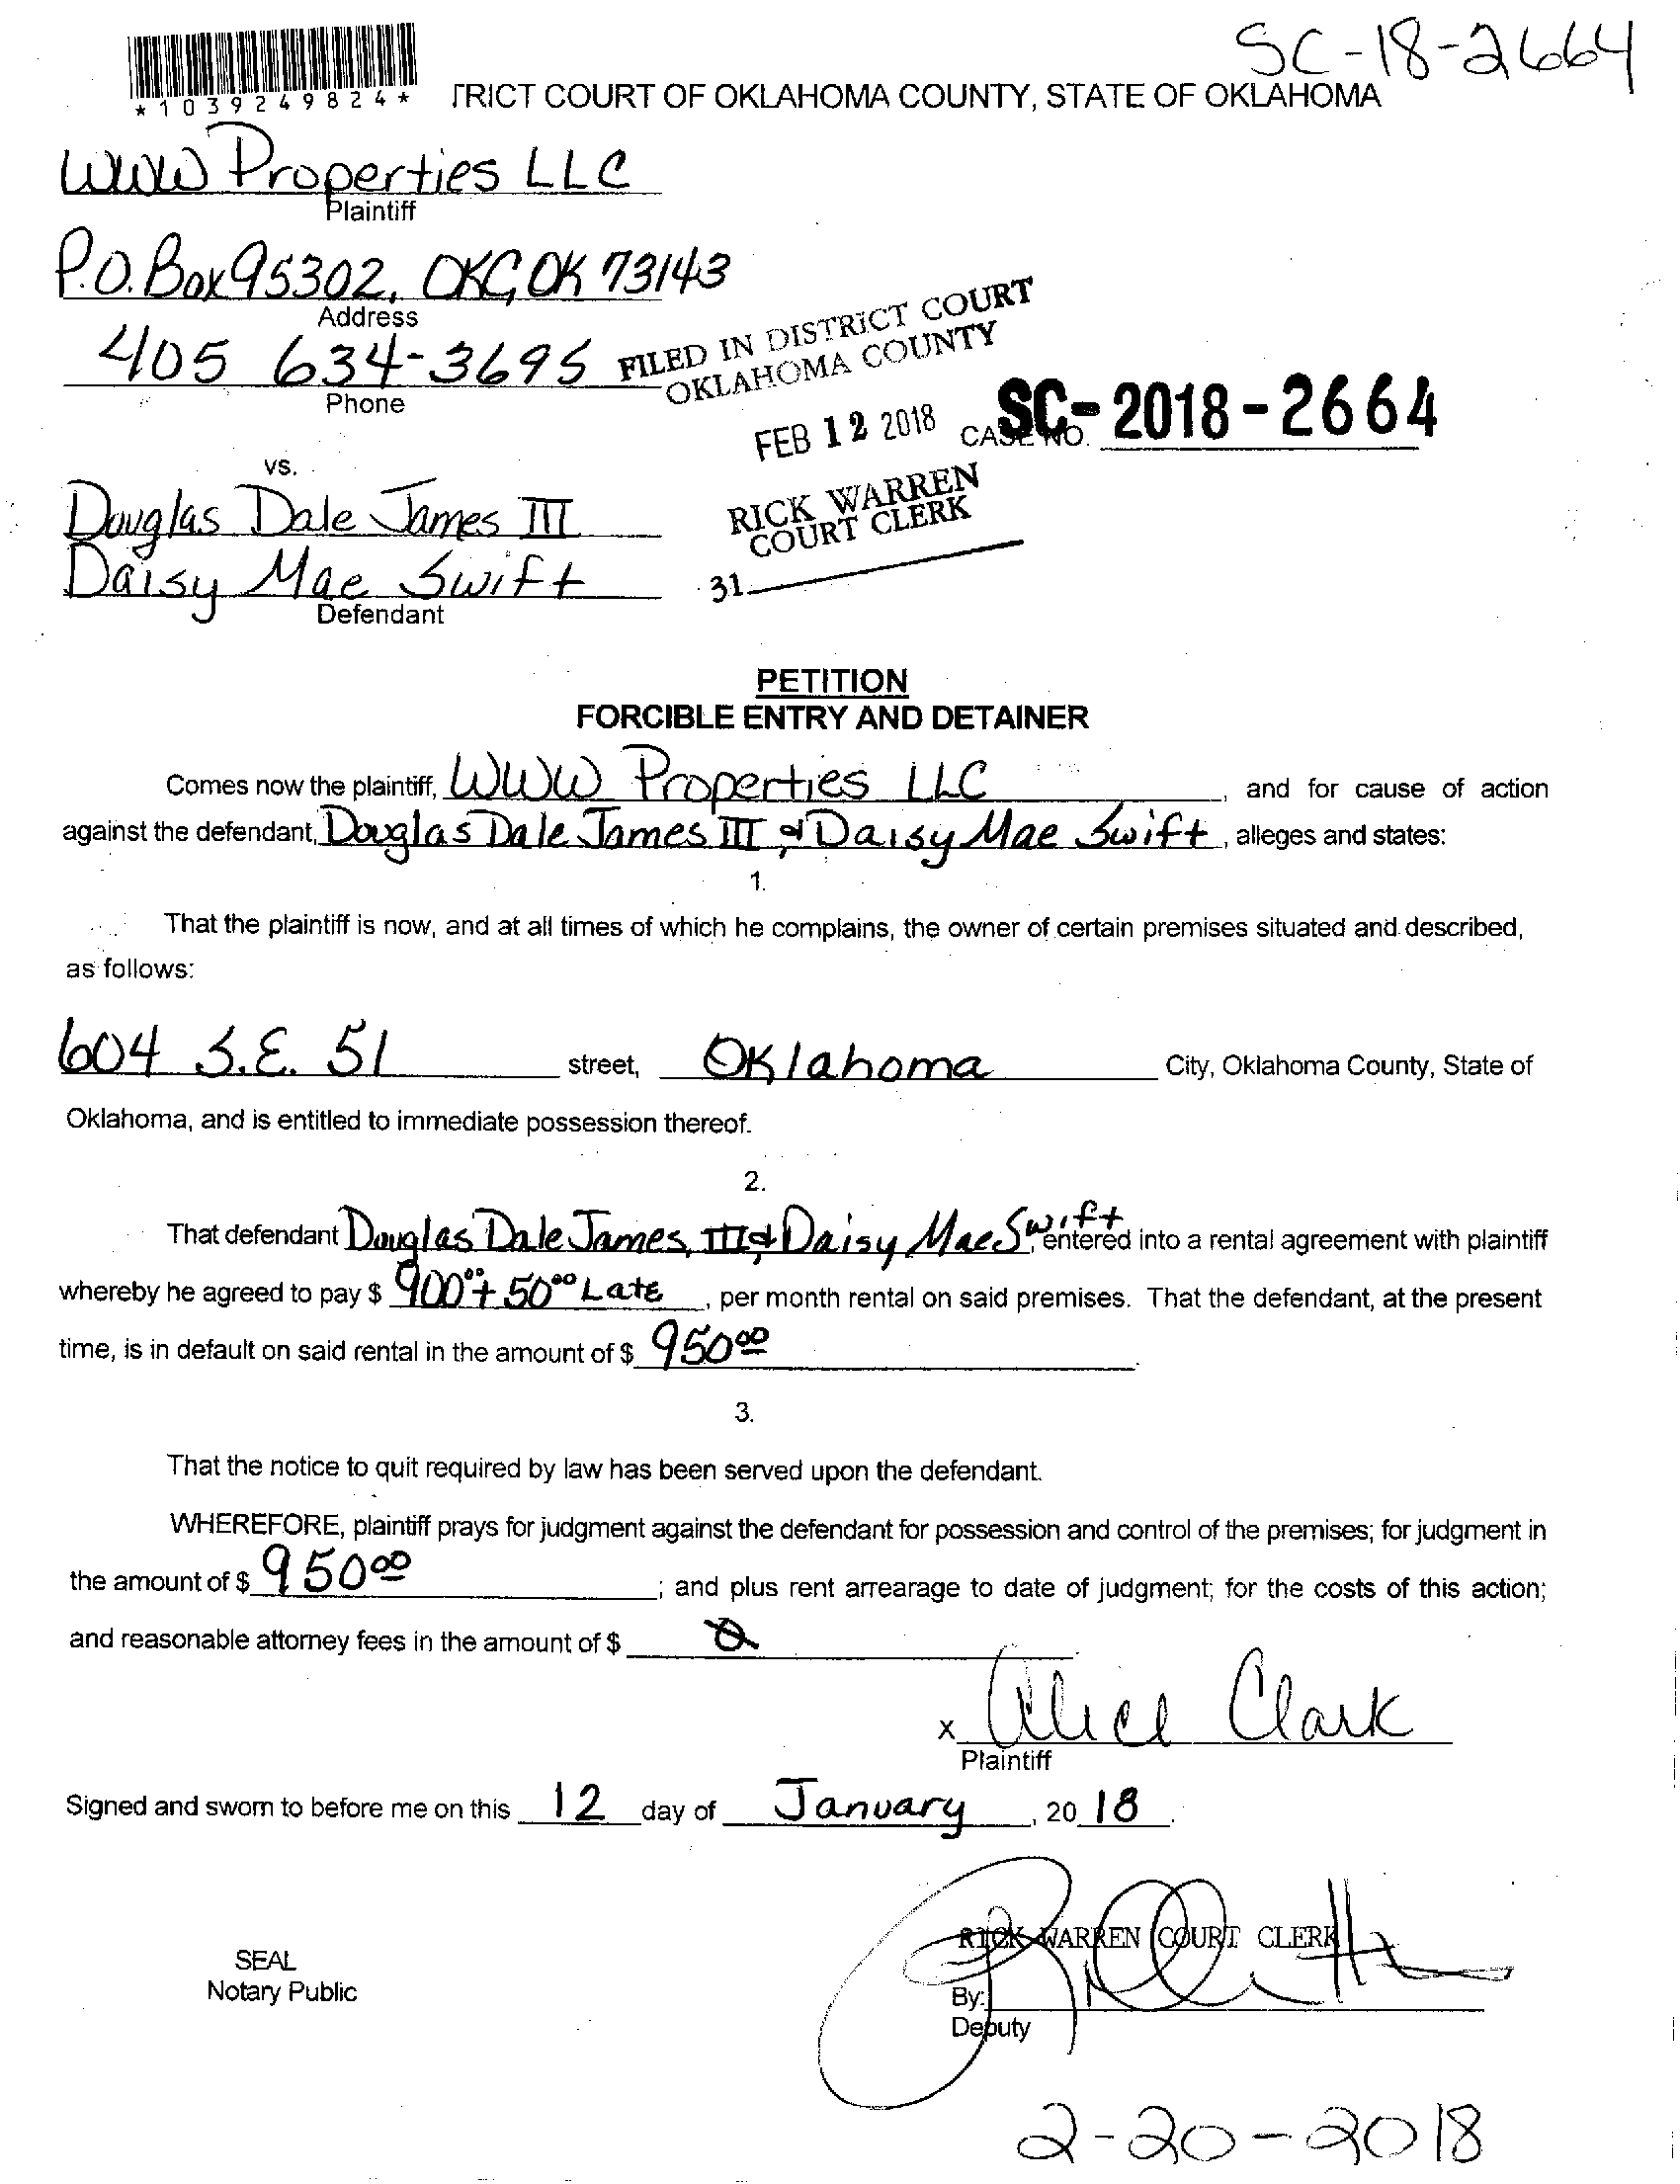 SC-18-2664
*1039249824*
TRICT COURT OF OKLAHOMA COUNTY, STATE OF OKLAHOMA
WWW Properties LLC
Plaintiff
P.O. Box 95302, OKC, OK 73143
Address
405 634-3695
Phone
FILED IN DISTRICT COURT
OKLAHOMA COUNTY
FEB 12 2018
CASE NO. SC-2018-2664
RICK WARREN
COURT CLERK
31
vs.
Douglas Dale James III
Daisy Mae Swift
Defendant
PETITION
FORCIBLE ENTRY AND DETAINER
Comes now the plaintiff, WWW Properties LLC, and for cause of action
against the defendant, Douglas Dale James III & Daisy Mae Swift, alleges and states:
1.
That the plaintiff is now, and at all times of which he complains, the owner of certain premises situated and described,
as follows:
604 S.E. 51 street, Oklahoma City, Oklahoma County, State of
Oklahoma, and is entitled to immediate possession thereof.
2.
That defendant Douglas Dale James, III & Daisy Mae Swift, entered into a rental agreement with plaintiff
whereby he agreed to pay $ 900.00 + 50.00 Late, per month rental on said premises. That the defendant, at the present
time, is in default on said rental in the amount of $ 950.00.
3.
That the notice to quit required by law has been served upon the defendant.
WHEREFORE, plaintiff prays for judgment against the defendant for possession and control of the premises; for judgment in
the amount of $ 950.00; and plus rent arrearage to date of judgment; for the costs of this action;
and reasonable attorney fees in the amount of $ 0
x Alice Clark
Plaintiff
Signed and sworn to before me on this 12 day of January, 20 18.
RICK WARREN COURT CLERK
SEAL
Notary Public
By:
Deputy
2-20-2018